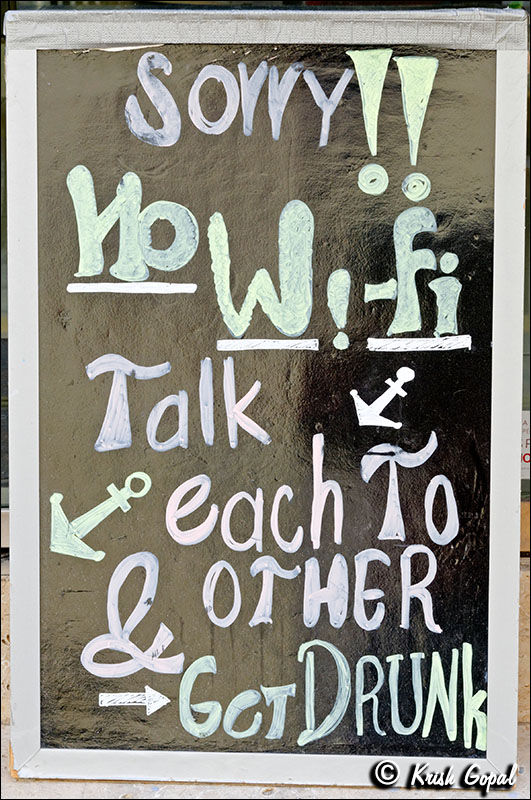 Sorry!!
No Wi-fi
Talk
each To
OTHER
& GET DRUNK
© Krish Gopal